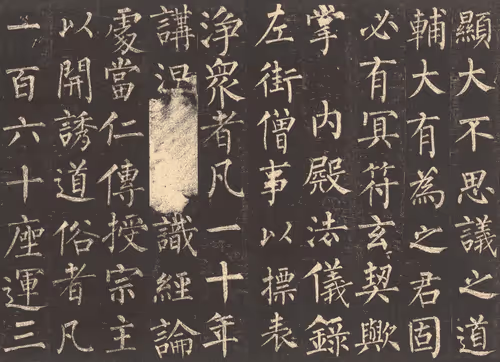 顯大不思議之道
輔大有為之君固
必有冥符玄契歟
掌 內殿法儀錄
左街僧事以標表
淨衆者凡一十年
講涅 識經論
處當仁傳授宗主
以開誘道俗者凡
一百六十座運三